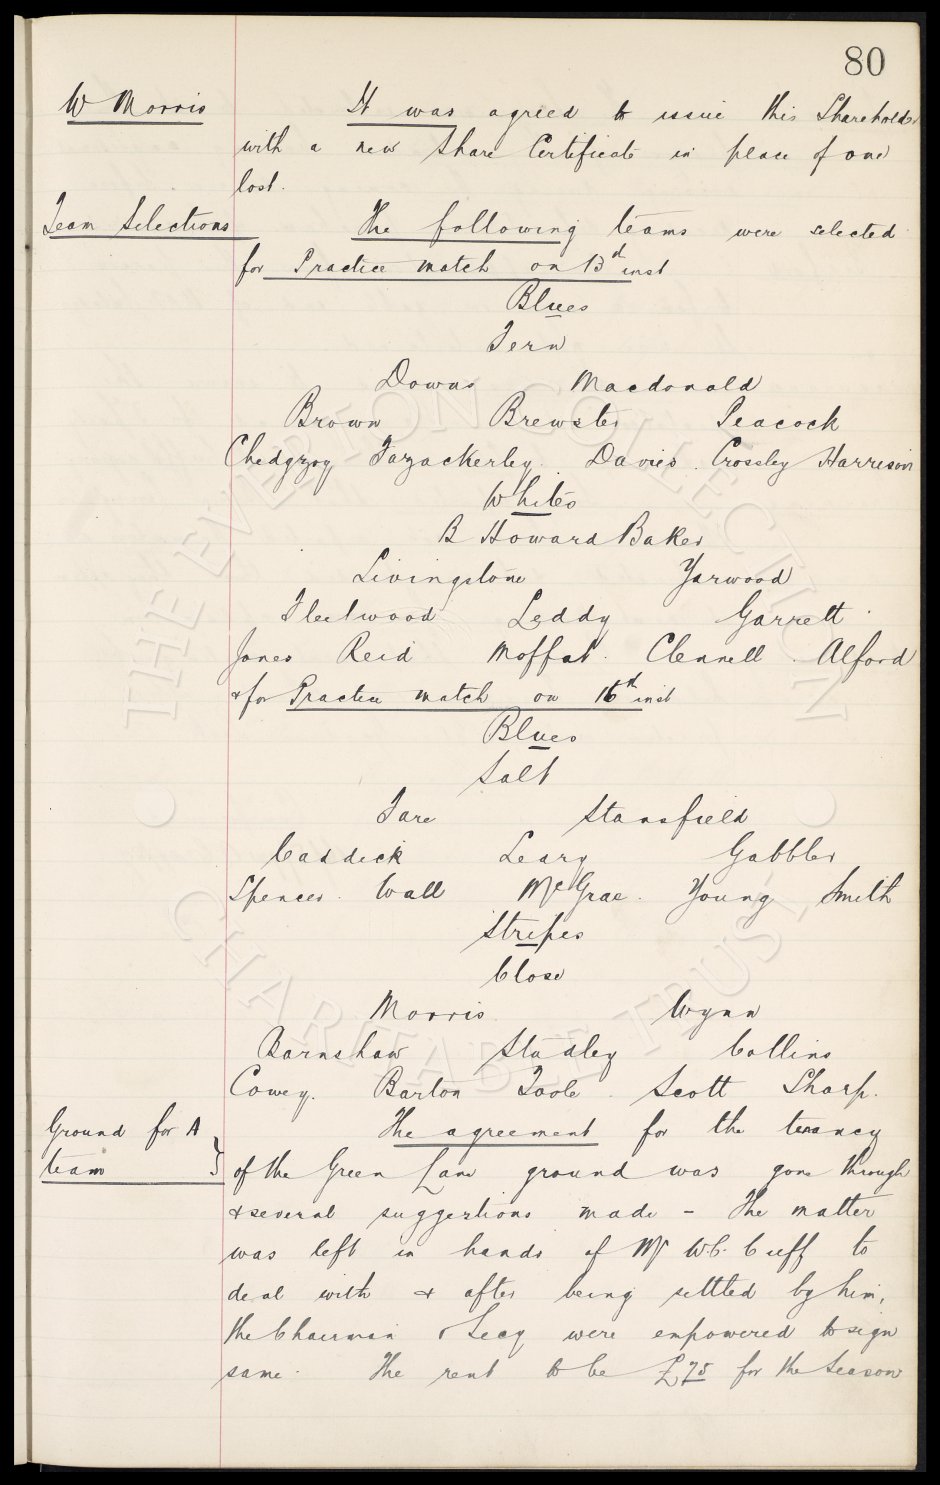 80
W Morris
It was agreed to issue this Shareholder
with a new Share Certificate in place of one
lost.
Team Selections
The following teams were selected
for Practice match on 13th inst
Blues
Fern
Downs Macdonald
Brown Brewster Peacock
Chedgzoy Fazackerley. Davies. Crossley Harrison
Whites
B Howard Baker
Livingstone Yarwood
Fleetwood Leddy Garrett
Jones Reid Moffat. Clennell. Alford
& for Practice match on 16th inst
Blues
Salt
Fare Stansfield
Caddick Leary Gabbler
Spencer. Wall McGrae. Young Smith
Stripes
Close
Morris. Wynn
Barnshaw Studley Collins
Cowey. Barton Toole. Scott Sharp.
Ground for A
team
The agreement for the tenancy
of the Green Lane ground was gone through
& several suggestions made - The matter
was left in hands of Mr W.C. Cuff to
deal with & after being settled by him,
the Chairman & Secy were empowered to sign
same. The rent to be £75 for the Season
THE EVERTON COLLECTION
CHARITABLE TRUST